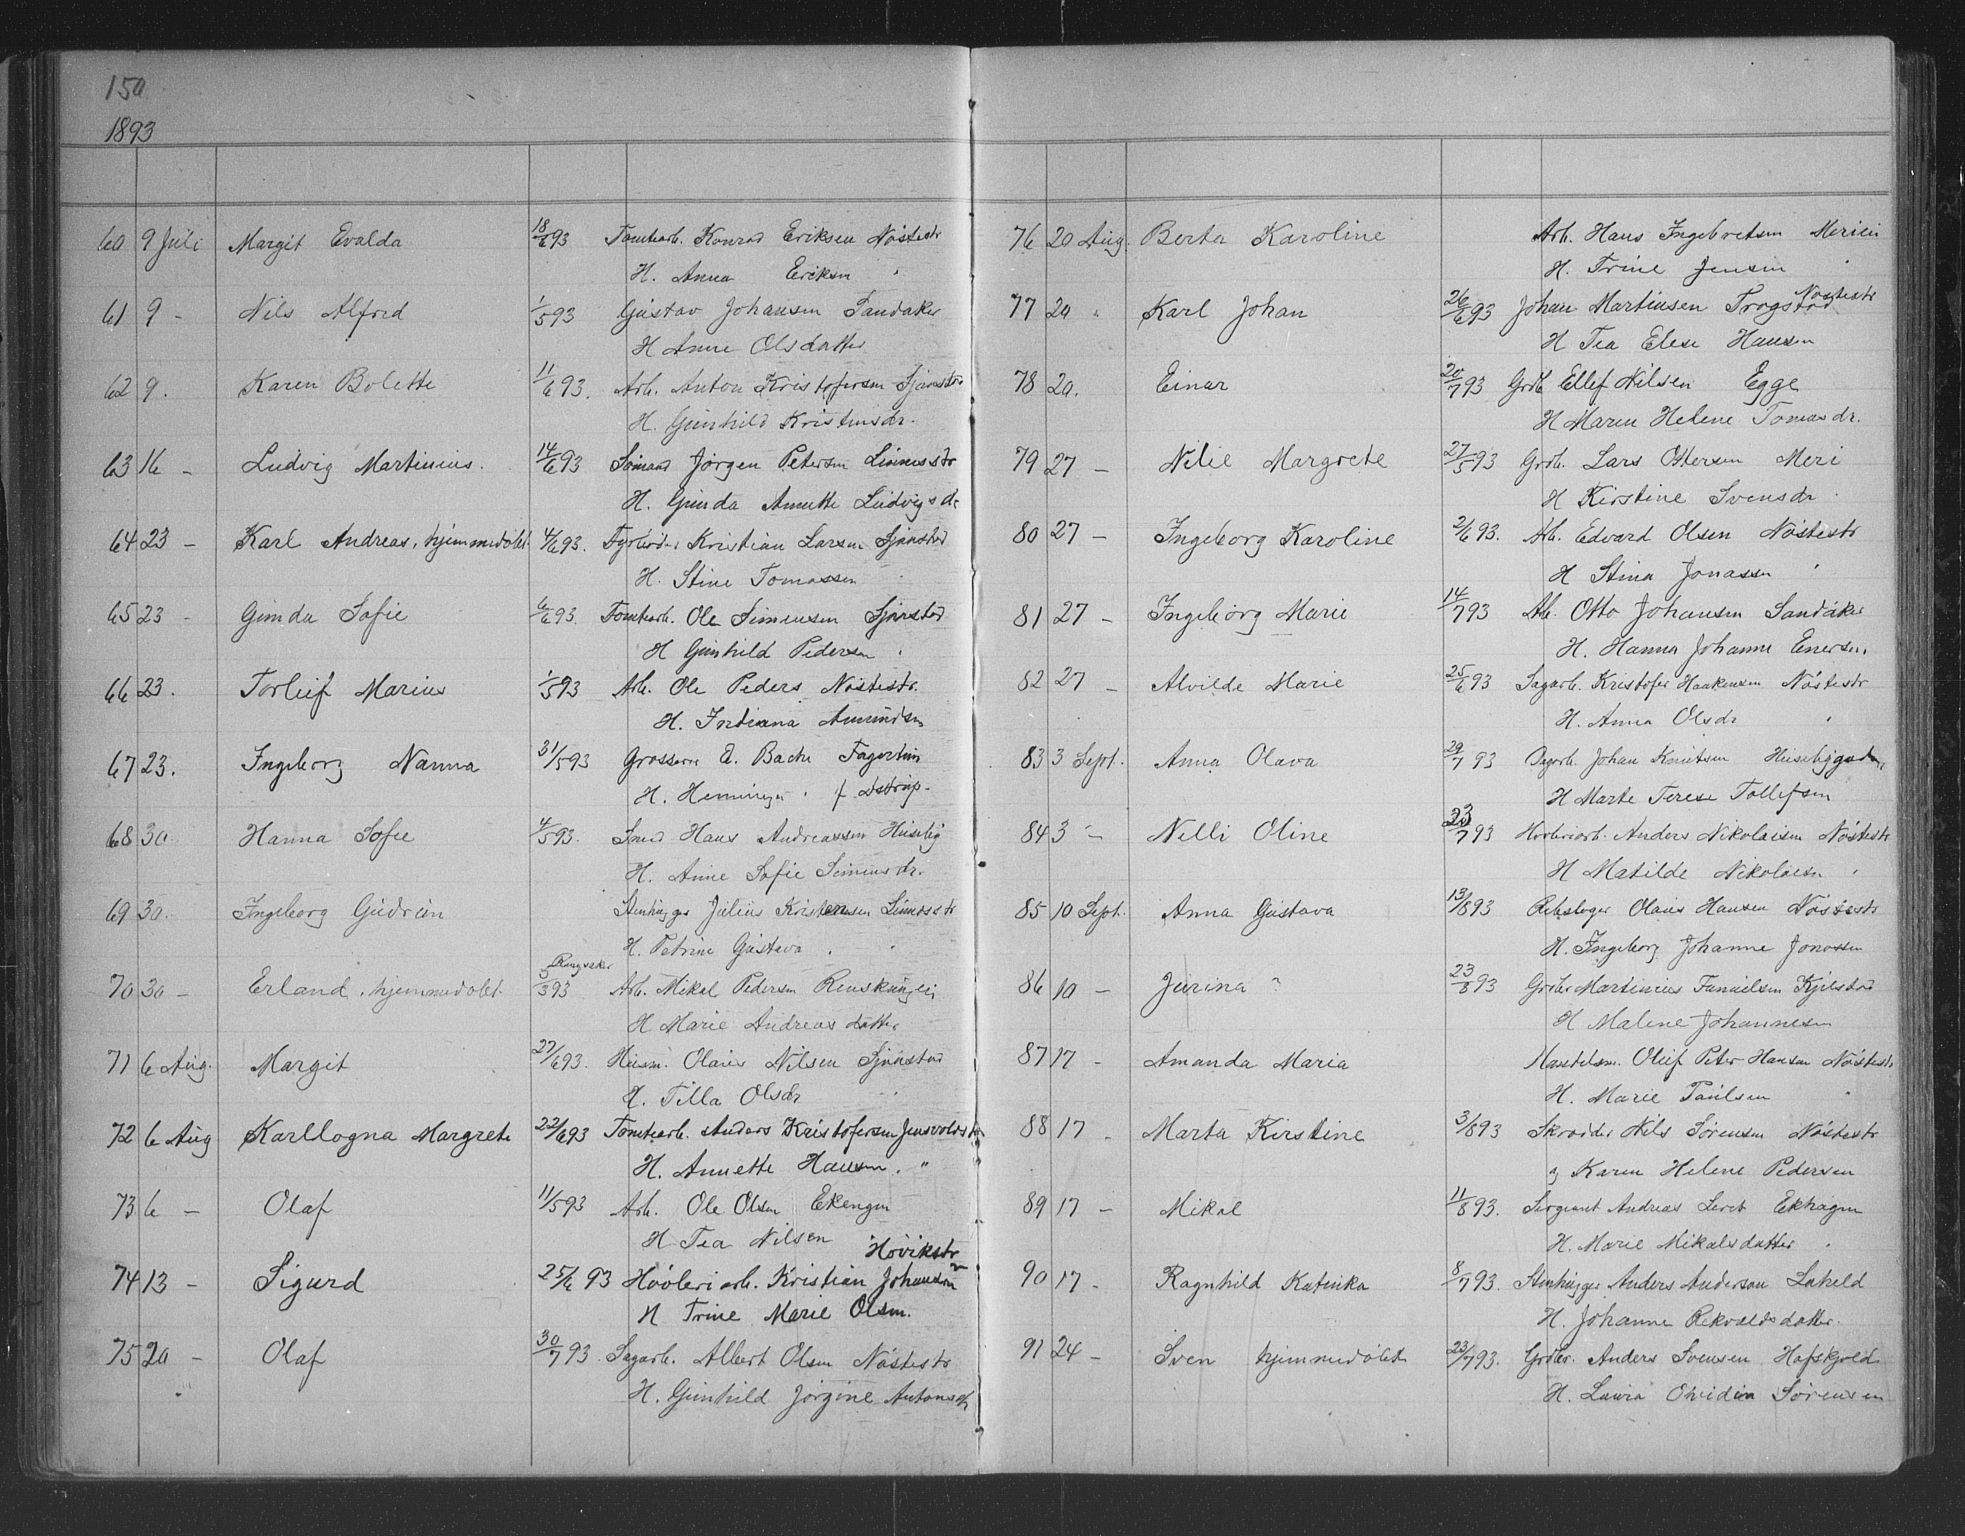 150
1893
60 9 Juli Margit Evalda 18/6 93 Tomtearb. Konrad Eriksen Nøstestr
H. Anna Eriksen
61 9 - Nils Alfred 1/5 93 Gustav Johansen Sandaker
H Anne Olsdatter
62 9. Karen Bolette 11/6 93. Arb. Anton Kristofersen
H. Gunhild Kristensdr.
63 16 - Ludvig Martinius. 14/6 93 Sømand Jørgen Petersen
H. Gunda Annette Ludvigsdr
64 23 - Karl Andreas, hjemmedøbt 4/6 93. Fyrbøder Kristian Larsen
H. Stine Tomassen
65 23 - Gunda Sofie 6/6 93. Tomtearb. Ole Simensen
H Gunhild Pedersen
66 23. Torleif Marius 1/5 93 Arb. Ole Peders Nøstestr.
H. Indiana Amundsen
67 23. Ingeborg Nanna 31/5 93 Grosserer E. Bache Fagertun
H. Henninger f.
68 30. Hanna Sofie 4/5 93. Smed Hans Andreassen Huseby
H. Anne Sofie Simensdr.
69 30. Ingeborg Gudrun Stenhugger Julius Kristensen
H. Petrine Gustava
Ringsaker
70 30 - Erland, hjemmedøbt 5/3 93 Arb. Mikal Pedersen
H Marie Andreasdatter
71 6 Aug. Margit 27/6 93. Husm. Olaus Nilsen
H. Tilla Olsdr
72 6 Aug Karllogna Margrete 22/6 93 Tomtearb. Anders Kristofersen Jensvoldstr
H. Annette Hansen. "
73 6 - Olaf 11/5 93 Arb. Ole Olsen Ekengen
H Tea Nilsen
Høvikstr
74 13 - Sigurd 25/6 93 Høvleriarb. Kristian Johansen
H Trine Marie Olsen.
75 20 - Olaf 30/7 93. Sagarb. Albert Olsen Nøstestr
H. Gunhild Jørgine Antonsen
76 20 Aug. Berta Karoline Arb. Hans Ingebretsen Merien
H. Trine Jensen
Nøstestr
77 20 " Karl Johan 26/6 93 Johan Martinsen Trogstad
H Tea Elese Hansen
78 20. Einar 20/7 93 Grdb Ellef Nilsen Egge
H Maren Helene Tomasdr.
79 27 - Nilie Margrete 27/5 93 Grdb. Lars Ottersen Meri
H Kirstine Svensdr.
80 27 - Ingeborg Karoline 2/6 93. Arb. Edvard Olsen Nøstestr
H Stina Jonassen
81 27 - Ingeborg Marie 14/7 93 Arb. Otto Johansen Sandaker
H. Hanna Johanne Enersen.
82 27 - Alvilde Marie 25/6 93 Sagarb. Kristofer Haakensen Nøstestr
H. Anna Olsdr
83 3 Sept. Anna Olava 29/7 93 Johan Knutsen
H Marte Terese Tollefsen
84 3 - Nelli Oline 23/7 93 Høvleriarb. Anders Nikolaisen Nøstestr
H Matilde Nikolaisen
85 10 Sept. Anna Gustava 13/8 93 Rebslager Olaus Hansen Nøstestr
H. Ingeborg Johanne Jonassen
86 10 - Jurina ? 23/8 93 Martinius
H Malene Johannesen
87 17 - Amanda Maria Oluf Peter Hansen Nøstestr
H. Marie Paulsen
88 17. Marta Kirstine 3/8 93 Skrædder Nils Sørensen Nøstestr
og Karen Helene Pedersen
89 17 - Mikal 11/8 93. Sergeant Andreas Ekhagen
H. Marie Mikalsdatter
90 17 - Ragnhild Katinka 8/7 93. Stenhugger Anders Anderson
H. Johanne
91 24 - Sven hjemmedøbt 23/7 93. Grdbr. Anders Svensen Hafskjold
H. Laura Ovidia Sørensen